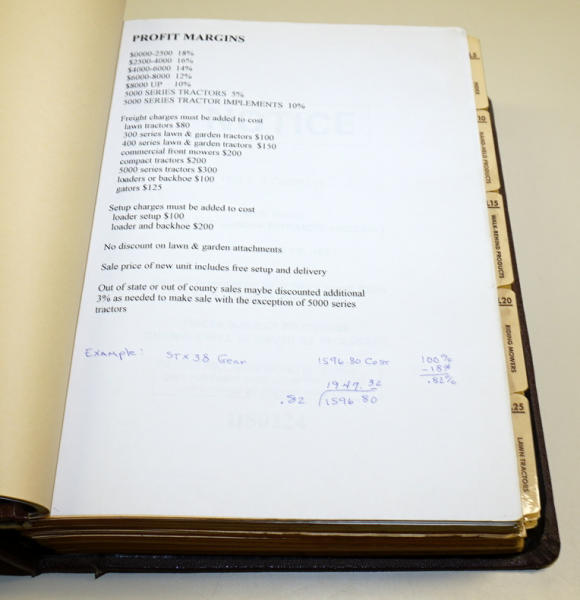 PROFIT MARGINS
$0000-2500 18%
$2500-4000 16%
$4000-6000 14%
$6000-8000 12%
$8000 UP 10%
5000 SERIES TRACTORS 5%
5000 SERIES TRACTOR IMPLEMENTS 10%
Freight charges must be added to cost
lawn tractors $80
300 series lawn & garden tractors $100
400 series lawn & garden tractors $150
commercial front mowers $200
compact tractors $200
5000 series tractors $300
loaders or backhoe $100
gators $125
Setup charges must be added to cost
loader setup $100
loader and backhoe $200
No discount on lawn & garden attachments
Sale price of new unit includes free setup and delivery
Out of state or out of county sales maybe discounted additional
3% as needed to make sale with the exception of 5000 series
tractors
Example: STX38 Gear 1596.80 Cost 100%
-18%
.82%
1947.32
.82 1596.80
L5
INDEX
10
HAND-HELD PRODUCTS
L15
WALK-BEHIND PRODUCTS
L20
RIDING MOWERS
25
LAWN TRACTORS